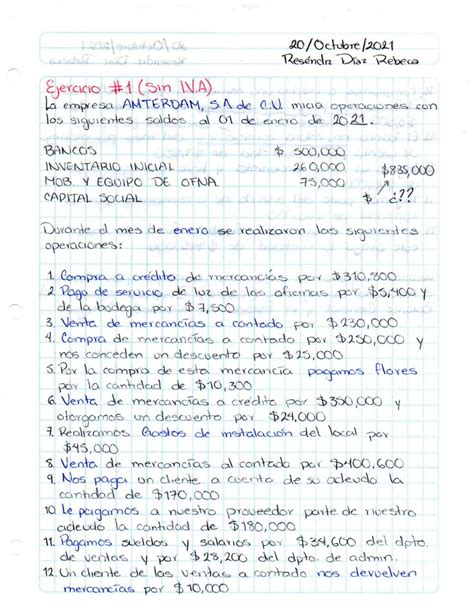 20/Octubre/2021
Reséndiz Díaz Rebeca
Ejercicio #1 (Sin IVA)
La empresa AMTERDAM, S.A de C.V inicia operaciones con
los siguientes saldos al 01 de enero de 2021.
BANCOS $ 500,000
INVENTARIO INICIAL 260,000 $835,000
MOB. Y EQUIPO DE OFNA. 75,000
CAPITAL SOCIAL $ ¿??
Durante el mes de enero se realizaron las siguientes
operaciones:
1. Compra a crédito de mercancías por $310,800
2. Pago de servicio de luz de las oficinas por $5,400 y
de la bodega por $7,500
3. Venta de mercancías a contado por $230,000
4. Compra de mercancías a contado por $250,000 y
nos conceden un descuento por $25,000
5. Por la compra de esta mercancía pagamos fletes
por la cantidad de $10,300
6. Venta de mercancías a crédito por $350,000 y
otorgamos un descuento por $24,000
7. Realizamos Gastos de instalación del local por
$45,000
8. Venta de mercancías al contado por $400,600
9. Nos paga un cliente a cuenta de su adeudo la
cantidad de $170,000
10 Le pagamos a nuestro proveedor parte de nuestro
adeudo la cantidad de $180,000
11. Pagamos sueldos y salarios por $34,600 del dpto.
de ventas y por $28,200 del dpto. de admin.
12. Un cliente de las ventas a contado nos devuelven
mercancías por $10,000